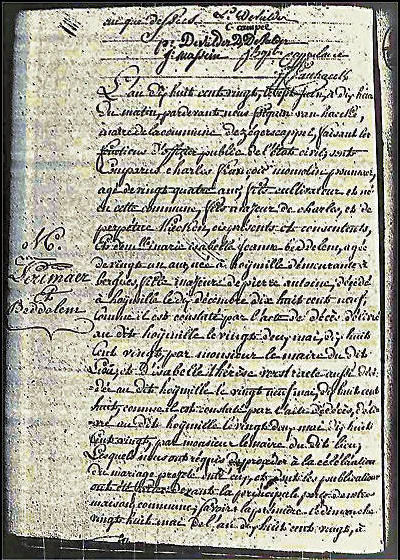 au que dessus
Campel
J. Massein
L'an dix huit cent vingt, le sept Juin, à dix heures
du matin, pardevant nous
maire de la commune de Zegerscappel, faisant les
fonctions d'officier public de l'état civil, sont
Comparus charles françois
agé de vingt quatre ans, cultivateur et né
en cette commune, fils majeur de charles, et de
perpetue ci présents et consentents,
marie isabelle jeanne Beddelem, agée
de vingt un an, née à hoijmille demeurante à
bergues, fille majeure de pierre antoine, décédé
à hoijmille le dix décembre dix huit cent neuf,
comme il est constaté par l'acte de décès délivré
au dit hoijmille le vingt deux mai, dix huit
Cent vingt, par monsieur le maire du dit
Lieu, et D'isabelle thérèse aussi décé-
dée au dit hoijmille le vingt neuf mai, dix huit cent
huit, comme il est constaté par l'acte de décès, déliv-
ré au dit hoijmille le vingt deux mai dix huit
cent vingt, par monsieur le maire du dit lieu,
Lesquels nous ont réquis de proceder à la célébration
du mariage projeté entr'eux, et dont les publications
ont été faites devant la principale porte de notre
maison commune, savoir la première le dimanche
vingt huit mai de l'an dix huit cent vingt, à
M.
et
Beddelem